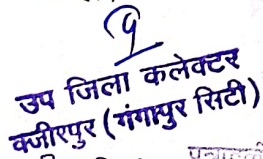 उप जिला कलेक्टर
वजीरपुर (गंगापुर सिटी)